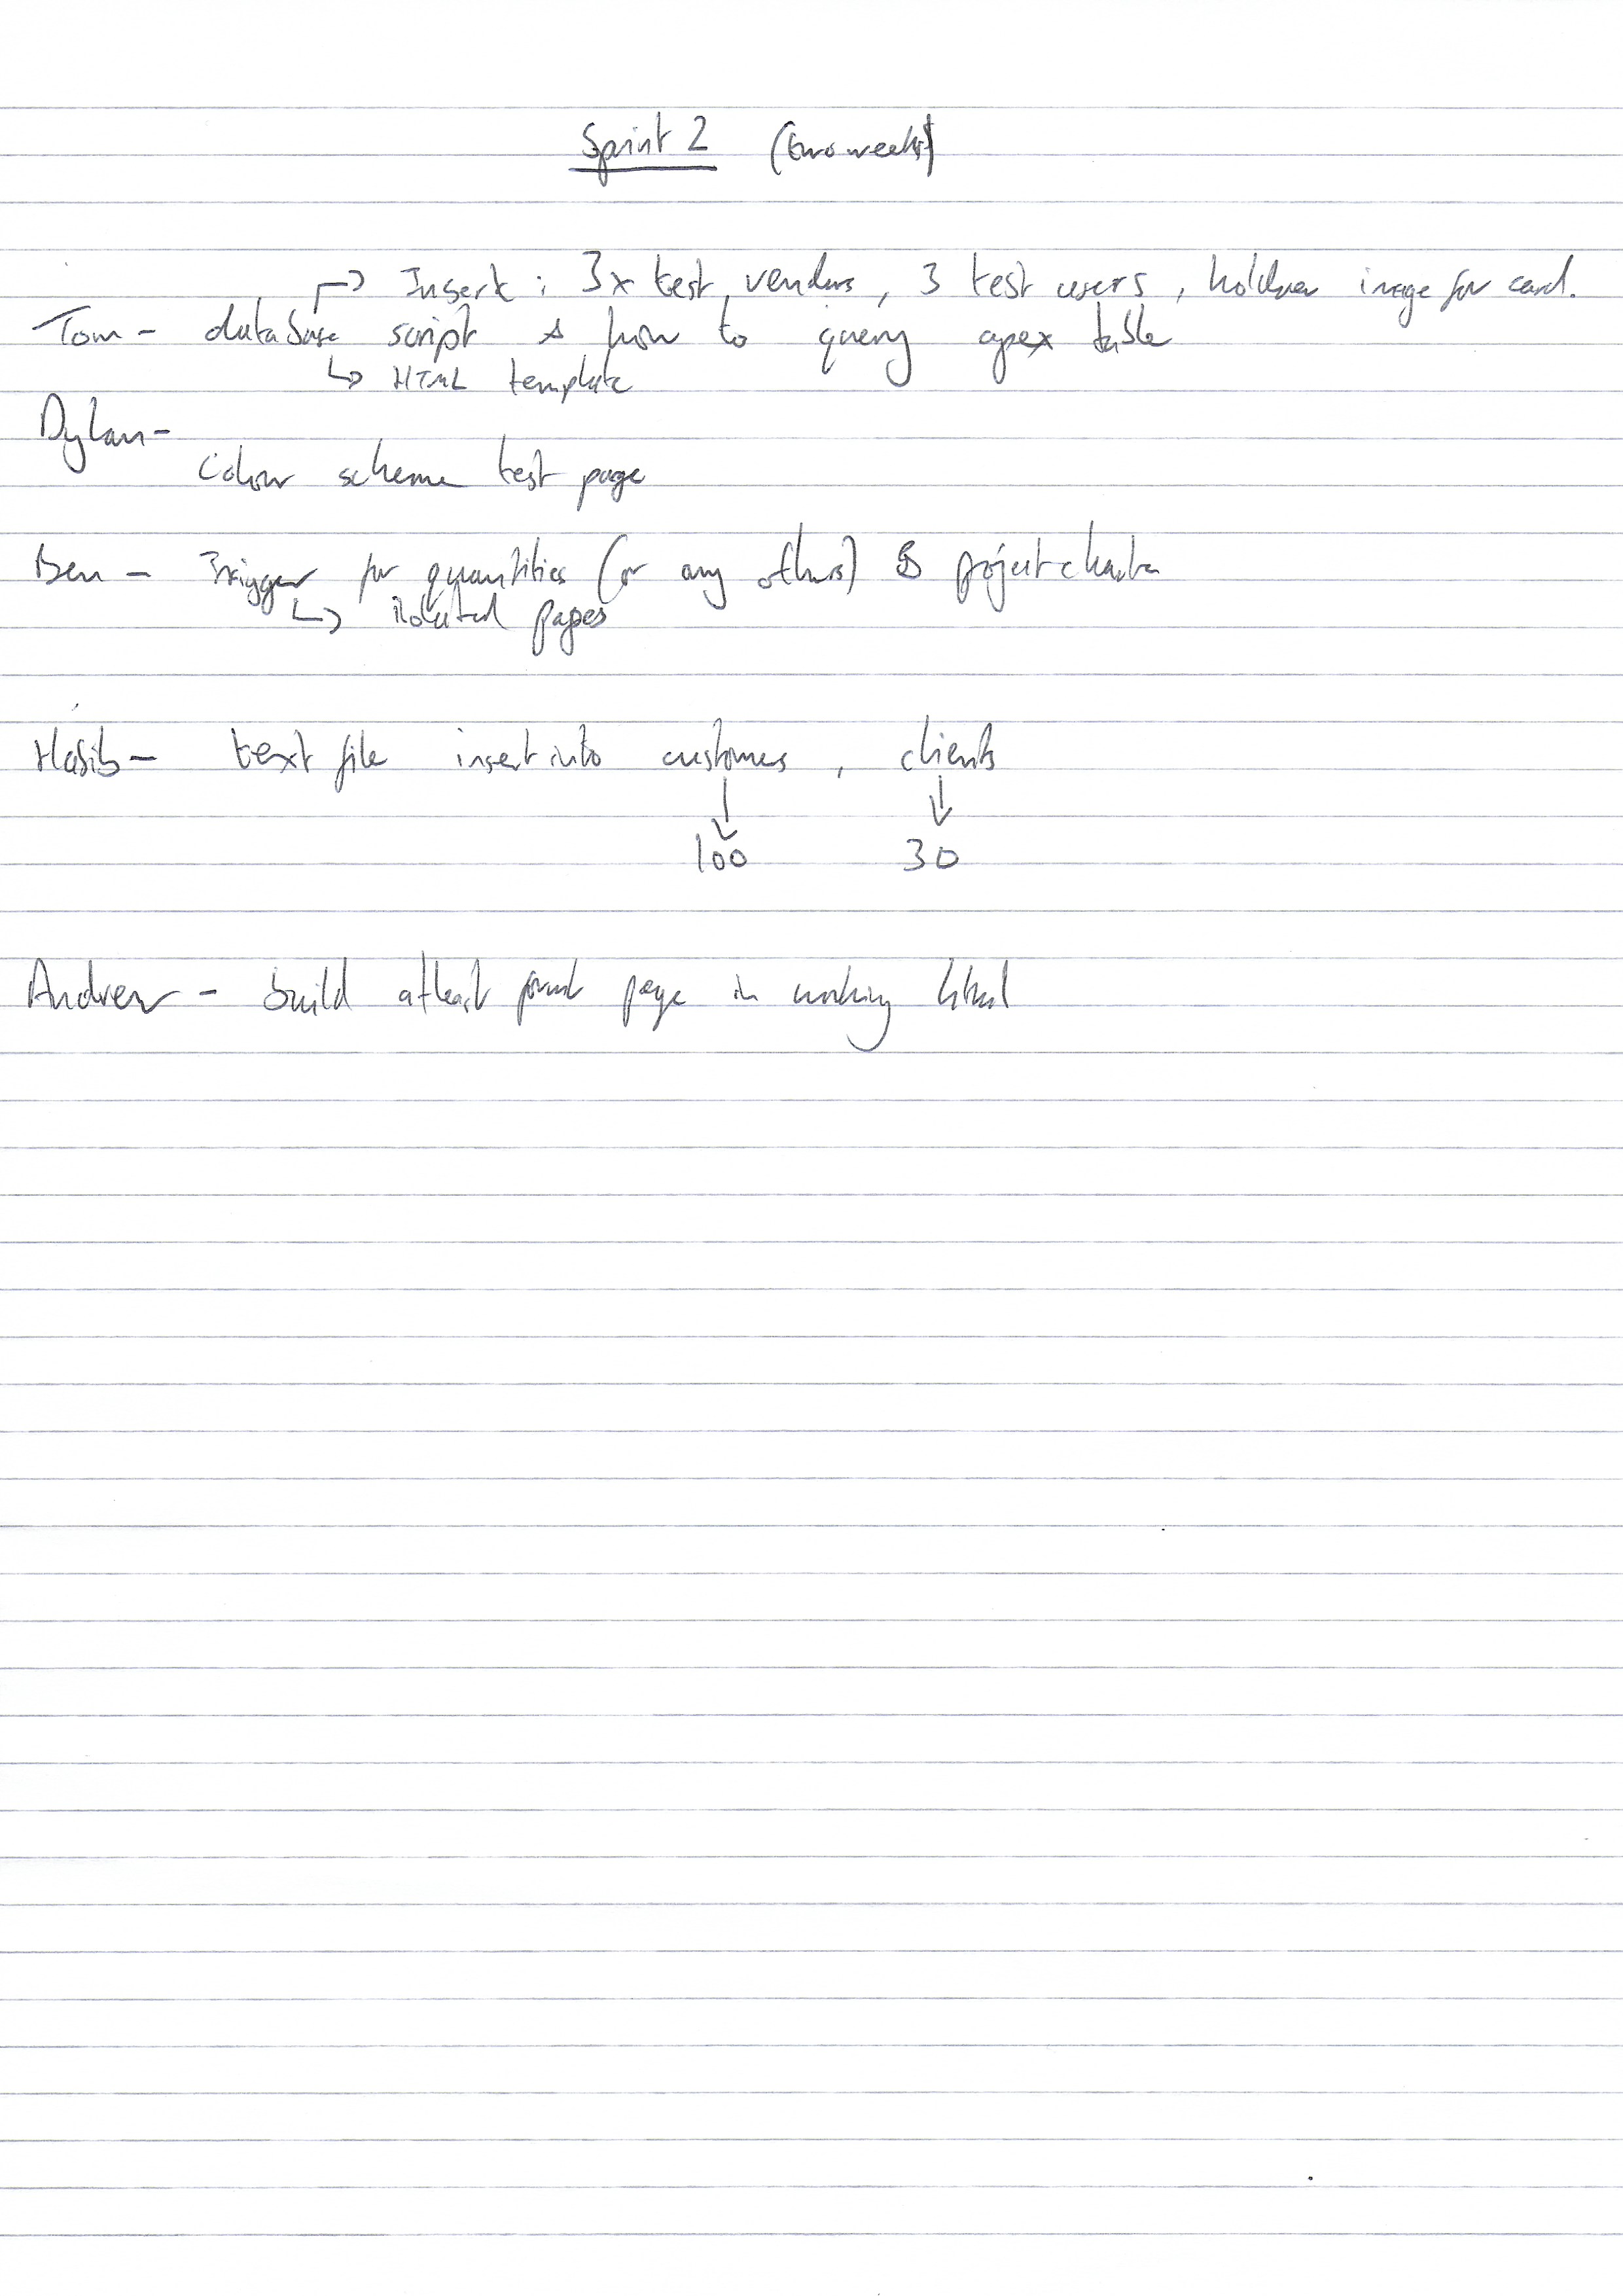 Sprint 2 (two weeks)
→ Insert : 3x test vendors , 3 test users , holder image for card.
Tom - database script & how to query apex table
↳ HTML template
Dylan -
Colour scheme test page
Ben - Trigger for quantities (or any others) & project charter
↳ isolated pages
Habib - text file insert into customers , clients
↓ ↓
100 30
Andrew - build atleast page in working